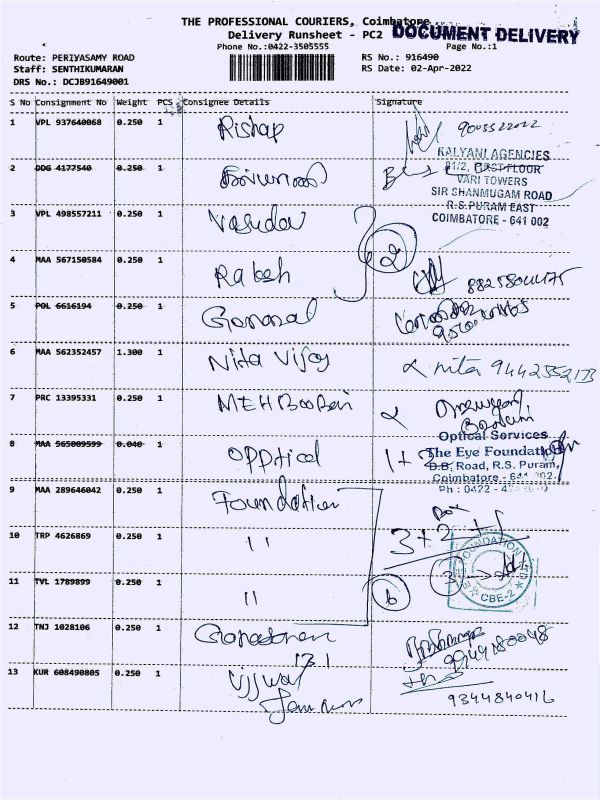 THE PROFESSIONAL COURIERS, Coimbatore
Delivery Runsheet - PC2
DOCUMENT DELIVERY
Phone No.:0422-3505555
Page No.:1
Route: PERIYASAMY ROAD
RS No.: 916490
Staff: SENTHIKUMARAN
RS Date: 02-Apr-2022
DRS No.: DCJB91649001
S No Consignment No Weight PCS Consignee Details Signature
1 VPL 937640068 0.250 1 Rishap
KALYANI AGENCIES
2 DDG 4177540 0.250 1
81/2, FIRST FLOOR
VARI TOWERS
SIR SHANMUGAM ROAD
R.S.PURAM EAST
COIMBATORE - 641 002
3 VPL 498557211 0.250 1 Vasudev
2
4 MAA 567150584 0.250 1 Rakesh
5 POL 6616194 0.250 1
6 MAA 562352457 1.300 1 Nita Vijoy
nita
7 PRC 13395331 0.250 1
Optical Services
8 MAA 565009599 0.040 1 Opptical
The Eye Foundation
D.B. Road, R.S. Puram,
Coimbatore - 641 002
Ph : 0422 -
9 MAA 289646042 0.250 1 Foundation
10 TRP 4626869 0.250 1 "
3+2+1
3
11 TVL 1789899 0.250 1 "
6
CBE-2
12 TNJ 1028106 0.250 1
9944180048
13 KUR 608490805 0.250 1
9344840416